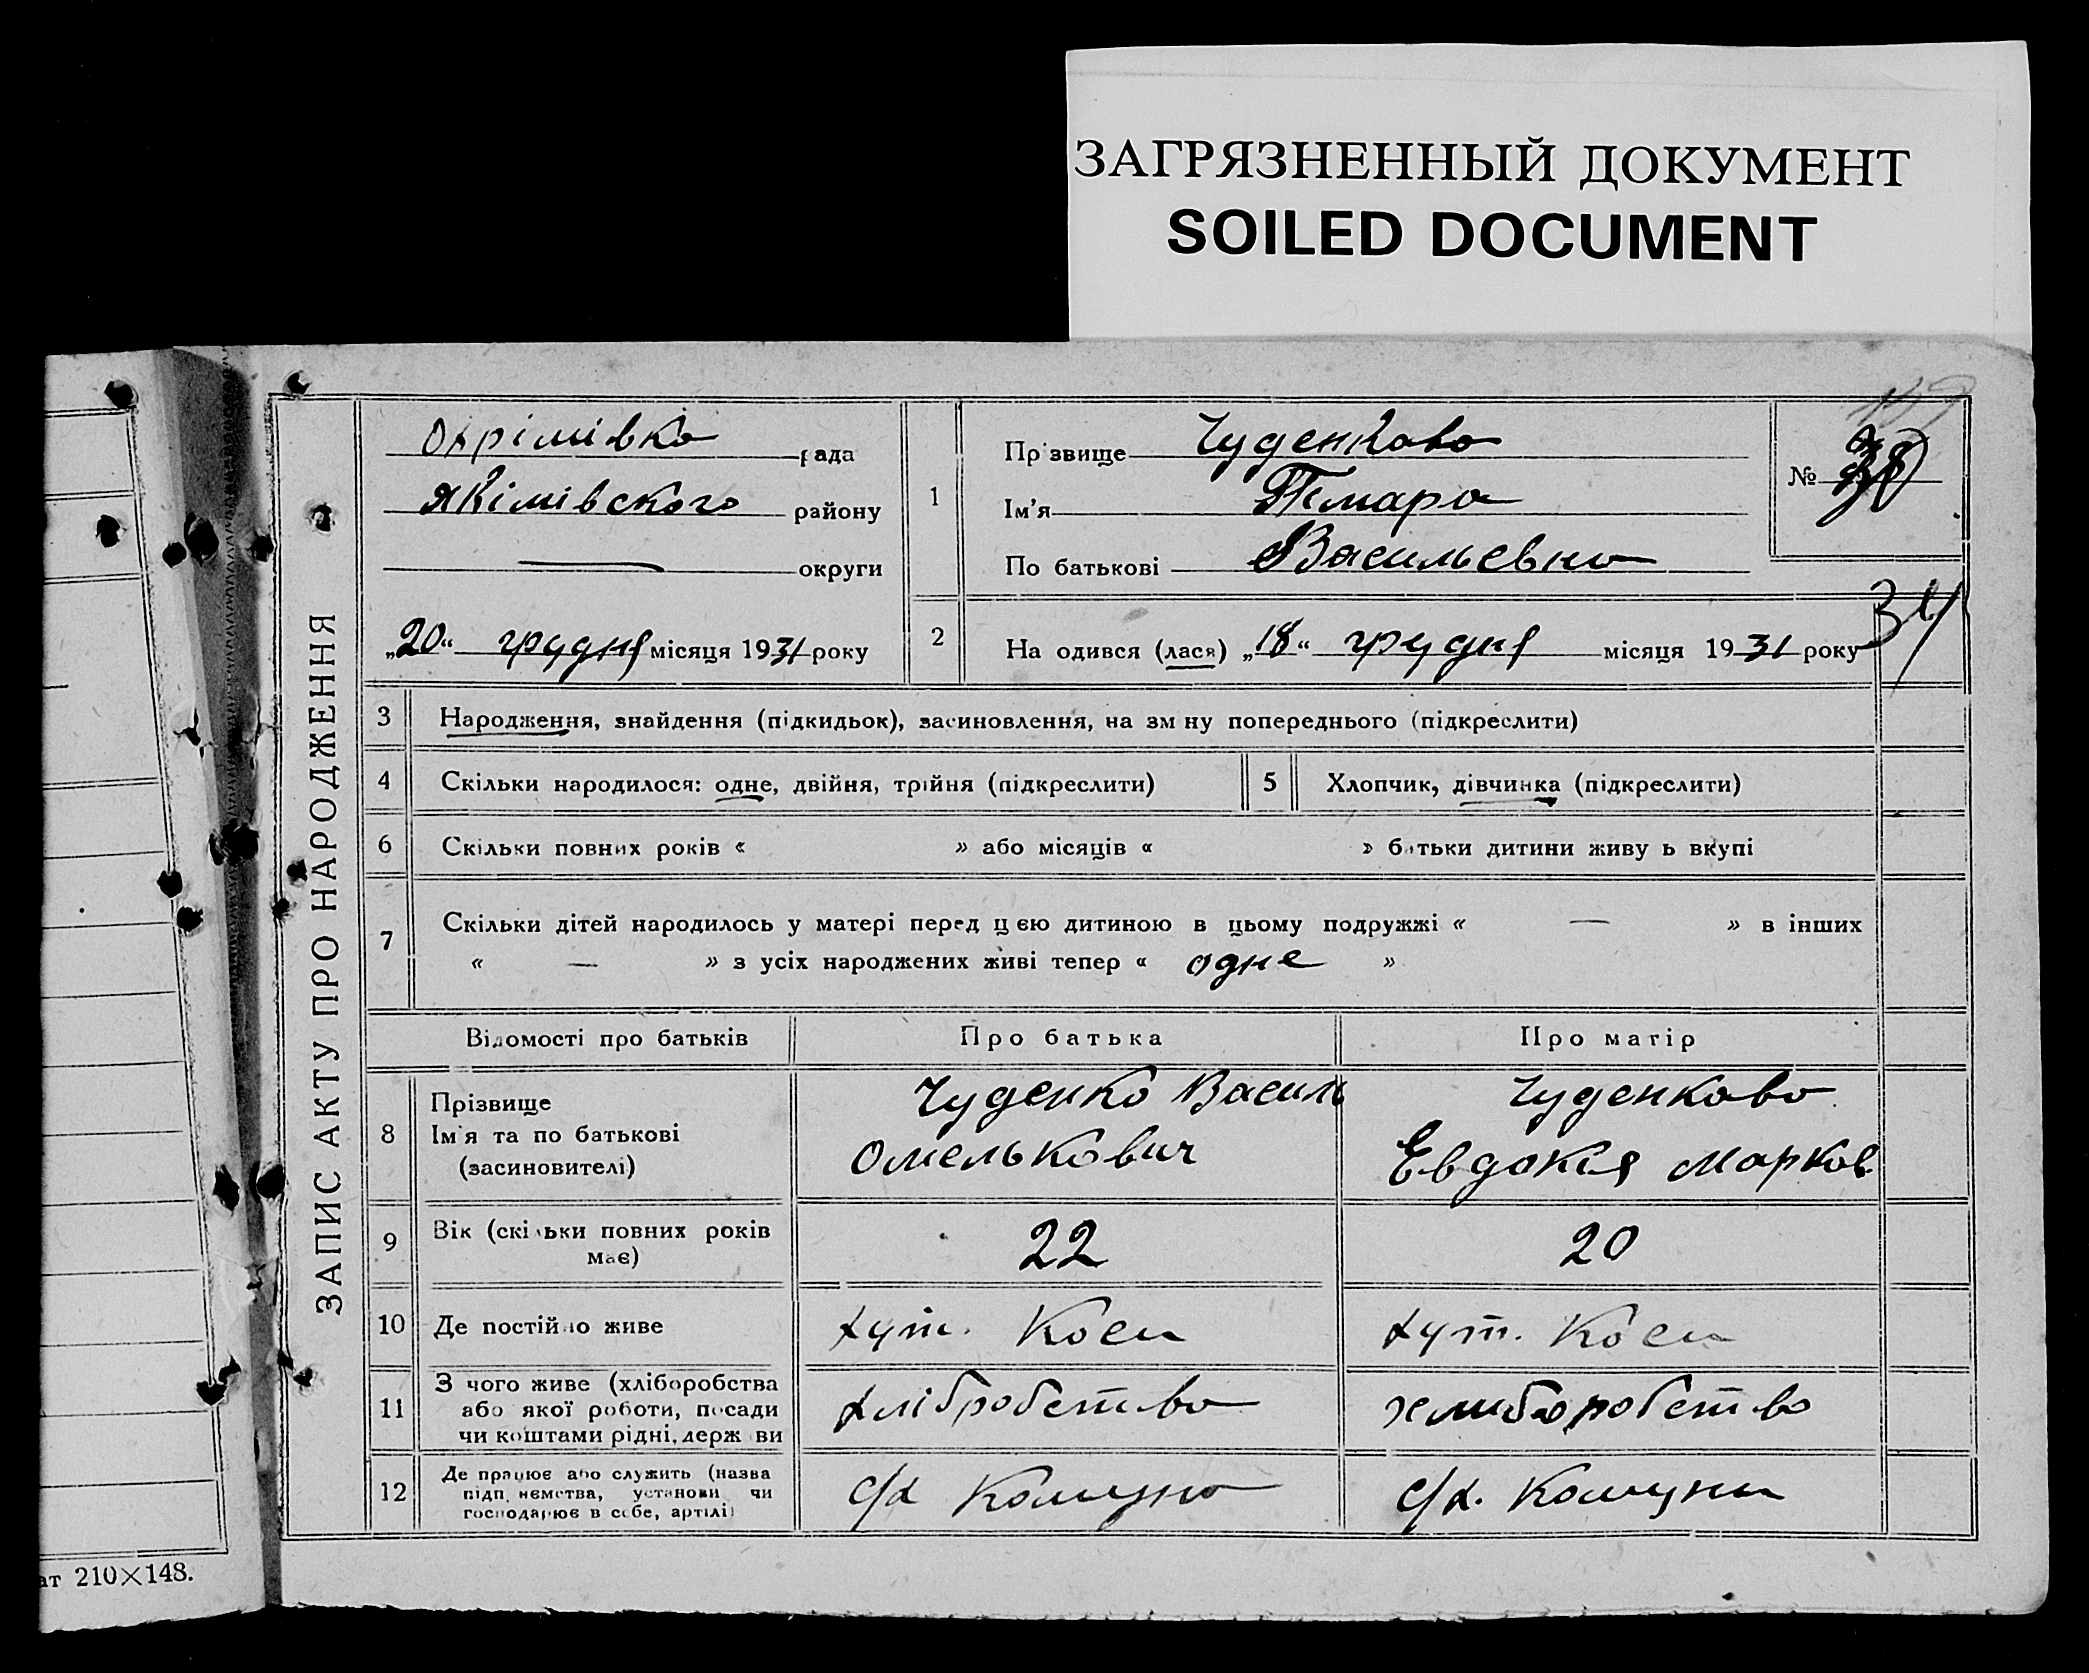 ЗАГРЯЗНЕННЫЙ ДОКУМЕНТ
SOILED DOCUMENT
ЗАПИС АКТУ ПРО НАРОДЖЕННЯ
Охрімівка рада
Якімівского району
— округи
„20“ грудня місяця 1931 року
1
Прізвище Чуденкова
Ім'я Тамара
По батькові Васильевна
№
34
2 На одився (лася) „18“ грудня місяця 1931 року
3 Народження, знайдення (підкидьок), засиновлення, на зм ну попереднього (підкреслити)
4 Скільки народилося: одне, двійня, трійня (підкреслити) 5 Хлопчик, дівчинка (підкреслити)
6 Скільки повних років « » або місяців « » батьки дитини живу ь вкупі
7 Скільки дітей народилось у матері перед цією дитиною в цьому подружжі « — » в інших
« — » з усіх народжених живі тепер « одне »
Відомості про батьків Про батька Про матір
8 Прізвище
Ім'я та по батькові
(засиновителі)
Чуденко Василь
Омелькович
Чуденкова
Евдокія Марков
9 Вік (скільки повних років
має)
22 20
10 Де постійно живе хут. Коси хут. Коси
11 З чого живе (хліборобства
або якої роботи, посади
чи коштами рідні, держ ви
хлібробство хлиборобство
12 Де працює або служить (назва
підп ємства, установи чи
господарює в себе, артілі)
с/х Комуна с/х. Комуни
ат 210×148.